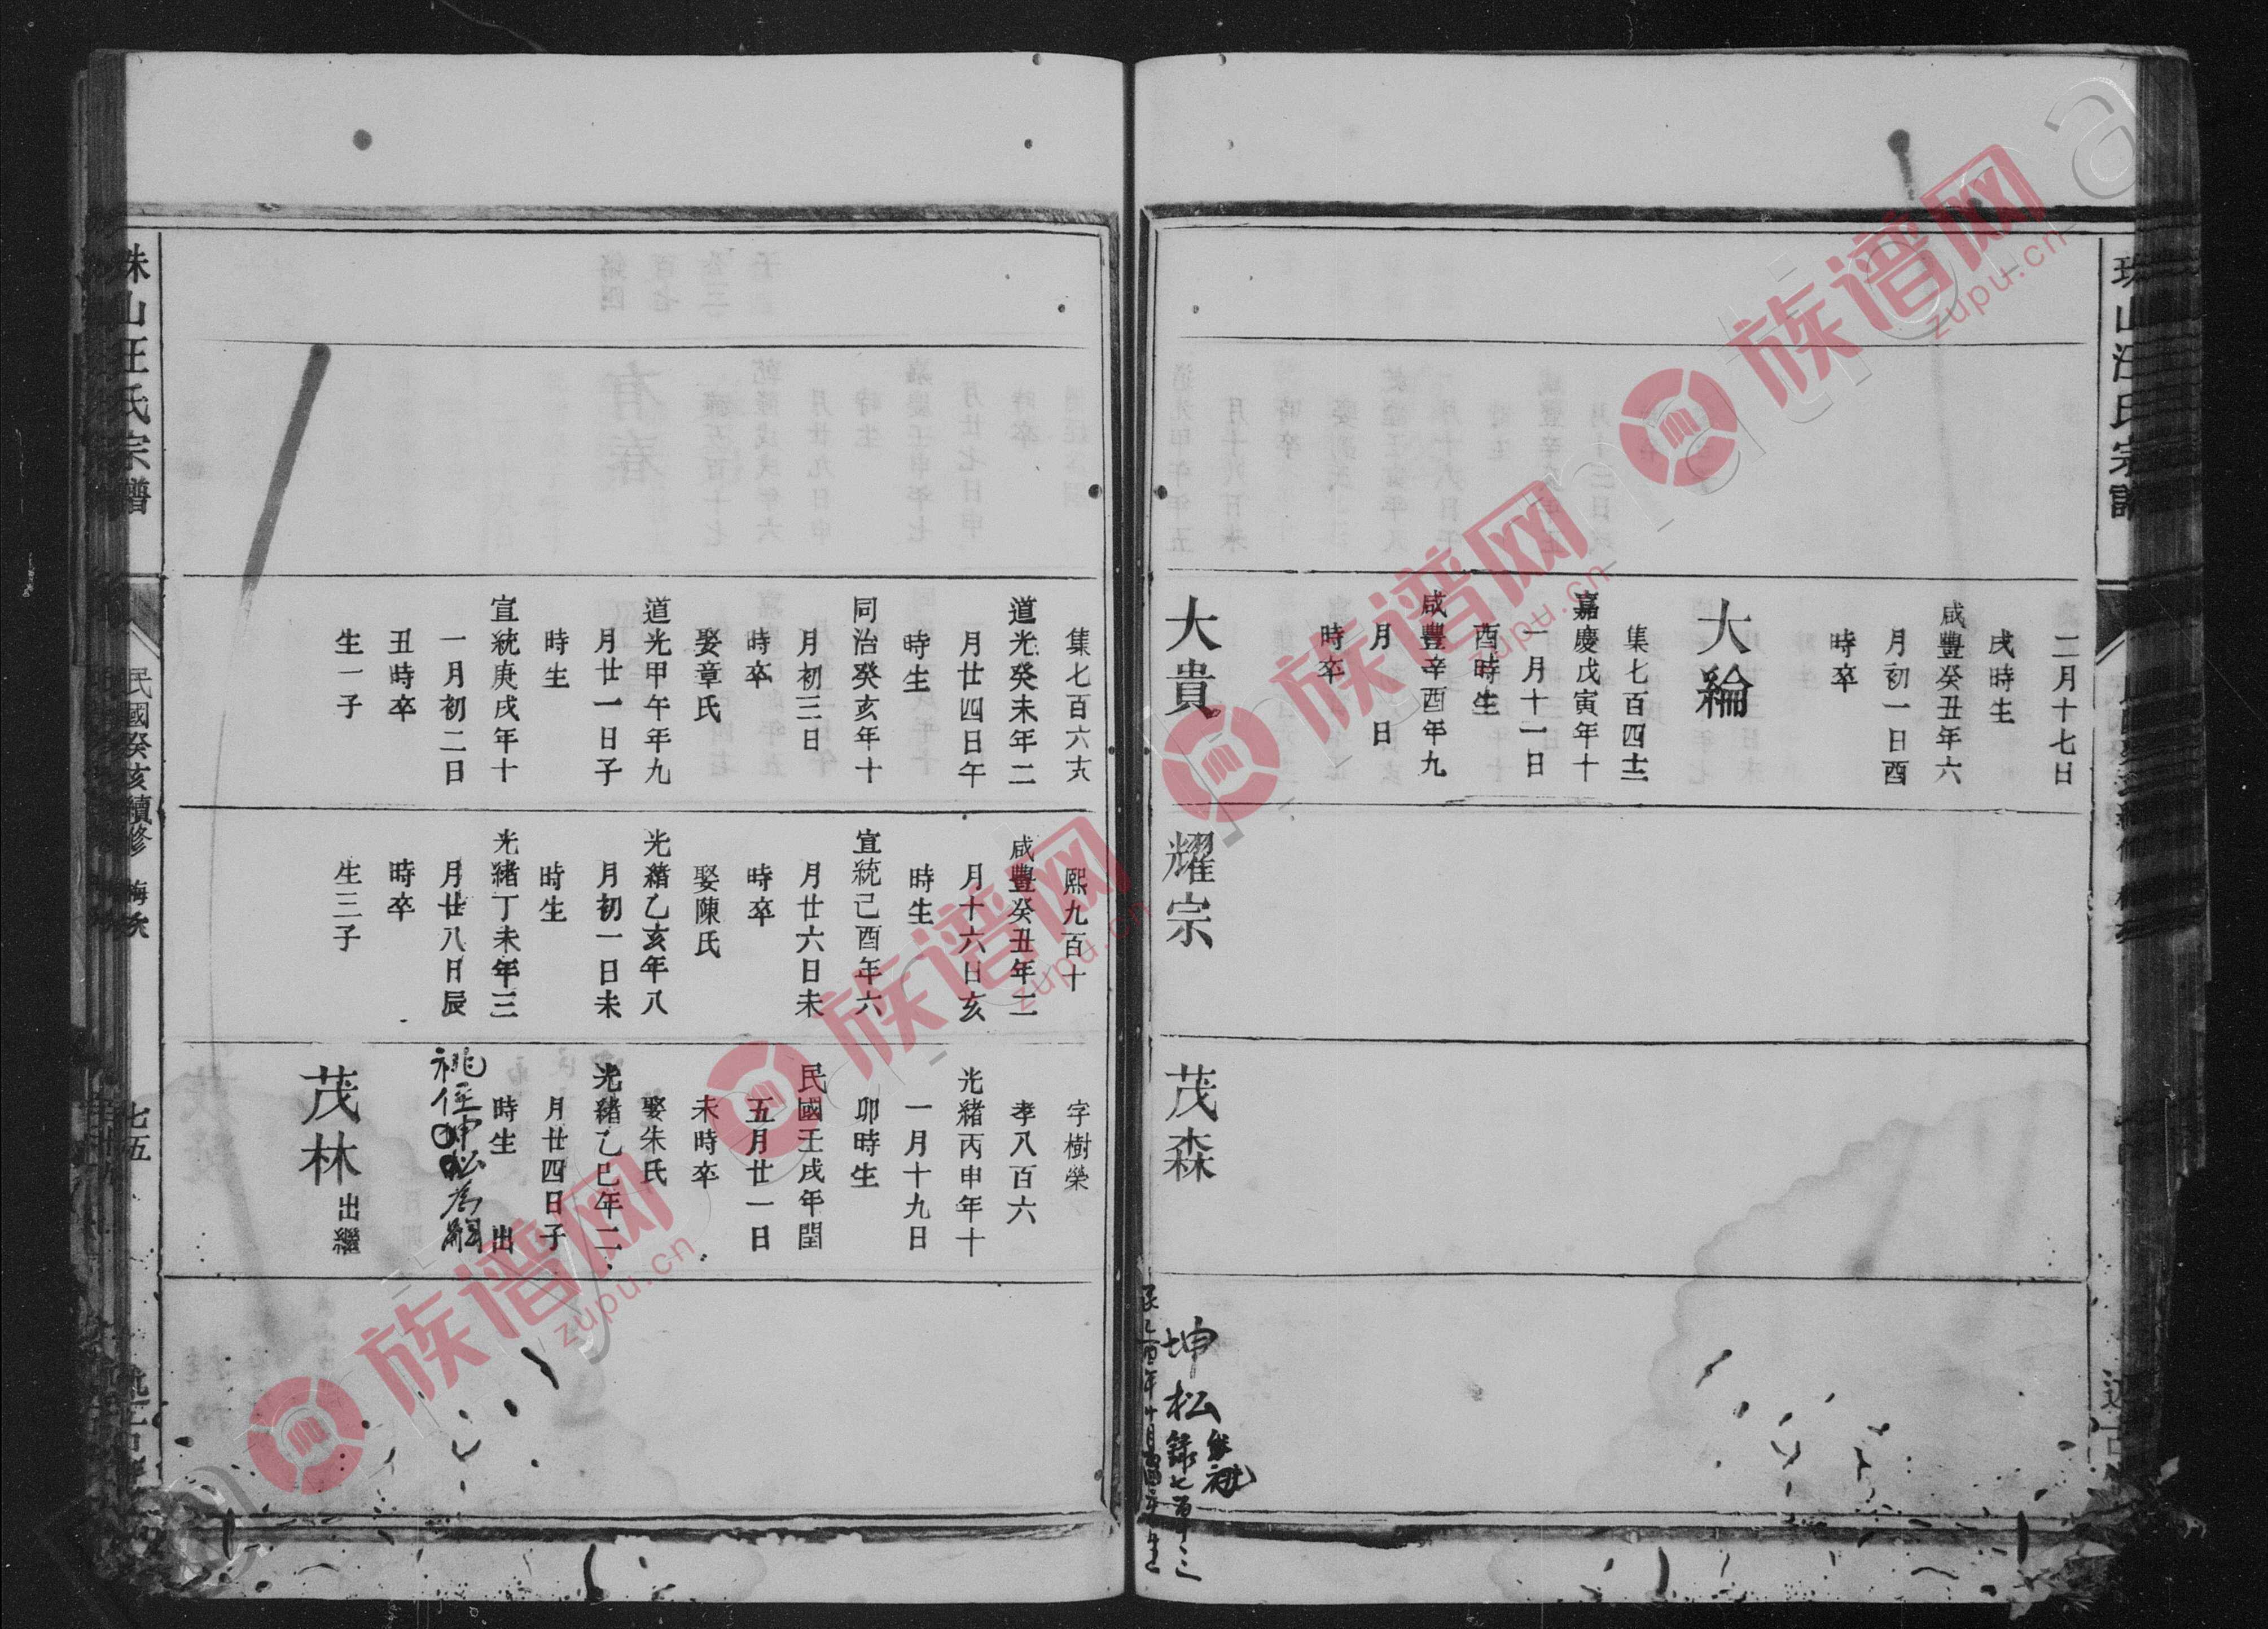 二月十七日
戌時生
咸豐癸丑年六
月初一日酉
時卒
大綸
集七百四十三
嘉慶戊寅年十
一月十一日
酉時生
咸豐辛酉年九
月　日
時卒
大貴
耀宗
茂森
坤松
錄七百十三
珠山汪氏宗譜
集七百六十六
道光癸未年二
月廿四日午
時生
同治癸亥年十
月初三日
時卒
娶章氏
道光甲午年九
月廿一日子
時生
宣統庚戌年十
一月初二日
丑時卒
生一子
熙九百十
咸豐癸丑年二
月十六日亥
時生
宣統己酉年六
月廿六日未
時卒
娶陳氏
光緒乙亥年八
月初一日未
時生
光緒丁未年三
月廿八日辰
時卒
生三子
字樹榮
孝八百六
光緒丙申年十
一月十九日
卯時生
民國壬戌年閏
五月廿一日
未時卒
娶朱氏
光緒乙巳年二
月廿四日子
時生　出
祧侄坤松為嗣
茂林
出繼
珠山汪氏宗譜
民國癸亥續修
七五
族谱网
zupu.cn
族谱网
zupu.cn
族谱网
zupu.cn
族谱网
zupu.cn